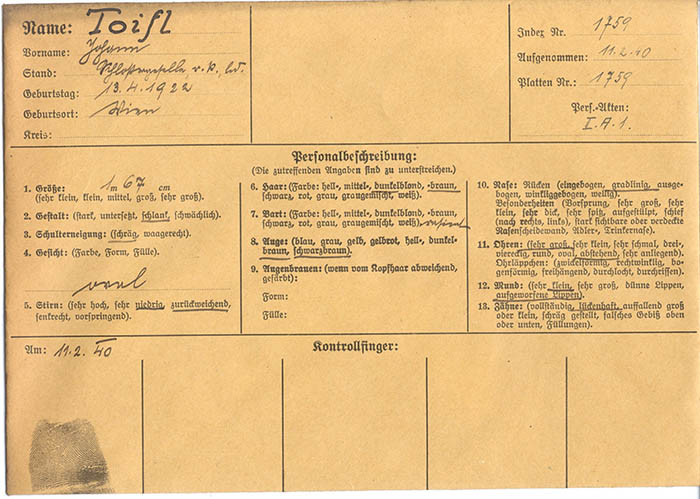 Name: Toifl
Vorname: Johann
Stand: Schlossergeselle, r. k., led.
Geburtstag: 13.4.1922
Geburtsort: Wien
Kreis:
Index Nr. 1759
Aufgenommen: 11.2.40
Platten Nr.: 1759
Pers.-Akten:
I.A.1.
Personalbeschreibung:
(Die zutreffenden Angaben sind zu unterstreichen.)
1. Größe: 1 m 67 cm
(sehr klein, klein, mittel, groß, sehr groß).
2. Gestalt: (stark, untersetzt, schlank, schwächlich).
3. Schulterneigung: (schräg, waagerecht).
4. Gesicht: (Farbe, Form, Fülle).
oval
5. Stirn: (sehr hoch, sehr niedrig, zurückweichend,
senkrecht, vorspringend).
6. Haar: (Farbe: hell-, mittel-, dunkelblond, -braun,
schwarz, rot, grau, graugemischt, weiß).
7. Bart: (Farbe: hell-, mittel-, dunkelblond, -braun,
schwarz, rot, grau, graugemischt, weiß). rasiert
8. Auge: (blau, grau, gelb, gelbrot, hell-, dunkel-
braun, schwarzbraun).
9. Augenbrauen: (wenn vom Kopfhaar abweichend,
gefärbt):
Form:
Fülle:
10. Nase: Rücken (eingebogen, gradlinig, ausge-
bogen, winkliggebogen, wellig).
Besonderheiten (Vorsprung, sehr groß, sehr
klein, sehr dick, sehr spitz, aufgestülpt, schief
(nach rechts, links), stark sichtbare oder verdeckte
Nasenscheidewand, Adler-, Trinkernase).
11. Ohren: (sehr groß, sehr klein, sehr schmal, drei-,
viereckig, rund, oval, abstehend, sehr anliegend).
Ohrläppchen: (zwickelförmig, rechtwinklig, bo-
genförmig, freihängend, durchlocht, durchrissen).
12. Mund: (sehr klein, sehr groß, dünne Lippen,
aufgeworfene Lippen).
13. Zähne: (vollständig, lückenhaft, auffallend groß
oder klein, schräg gestellt, falsches Gebiß oben
oder unten, Füllungen).
Am: 11.2.40
Kontrollfinger: